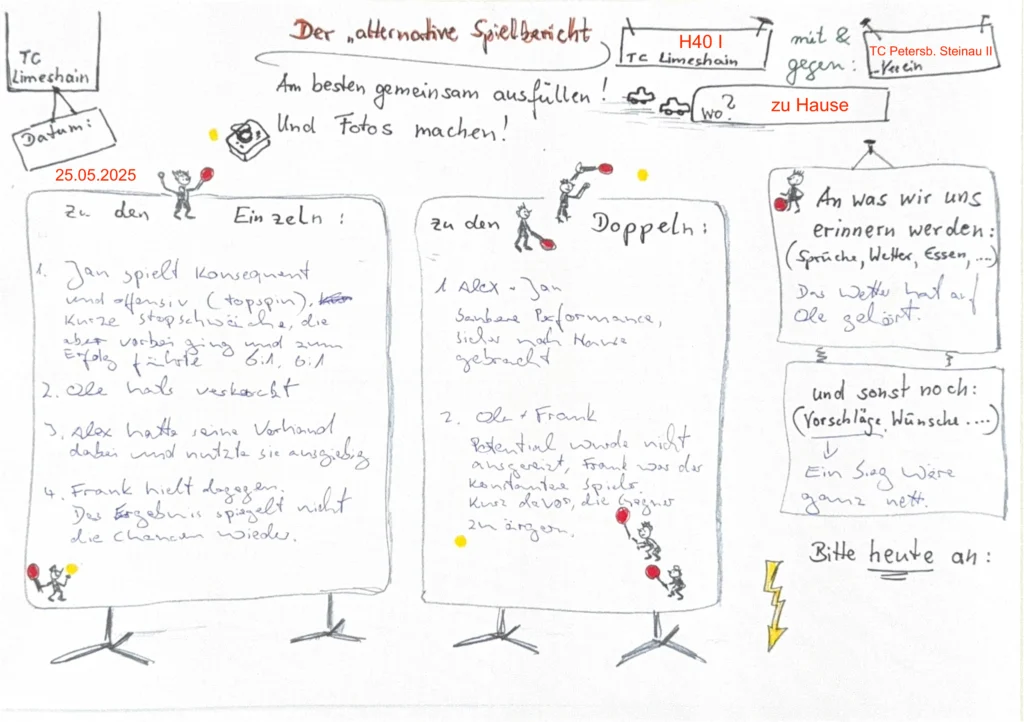 TC
Limeshain
Datum:
25.05.2025
Der „alternative Spielbericht
Am besten gemeinsam ausfüllen!
Und Fotos machen!
H40 I
TC Limeshain
mit &
gegen:
TC Petersb. Steinau II
Verein
wo?
zu Hause
zu den Einzeln:
1. Jan spielt konsequent
und offensiv (topspin),
Kurze stopschwäche, die
aber vorbei ging und zum
Erfolg führte 6:1, 6:1
2. Ole hats verkackt
3. Alex hatte seine Vorhand
dabei und nutzte sie ausgiebig
4. Frank hielt dagegen.
Das Ergebnis spiegelt nicht
die Chancen wieder.
zu den Doppeln:
1. Alex - Jan
Saubere Performance,
sicher nach Hause
gebracht
2. Ole + Frank
Potential wurde nicht
ausgereizt, Frank war der
konstantere Spieler.
Kurz davor, die Gegner
zu ärgern.
An was wir uns
erinnern werden:
(Sprüche, Wetter, Essen, ....)
Das Wetter hat auf
Ole gehört.
und sonst noch:
(Vorschläge, Wünsche ....)
Ein Sieg wäre
ganz nett.
Bitte heute an: